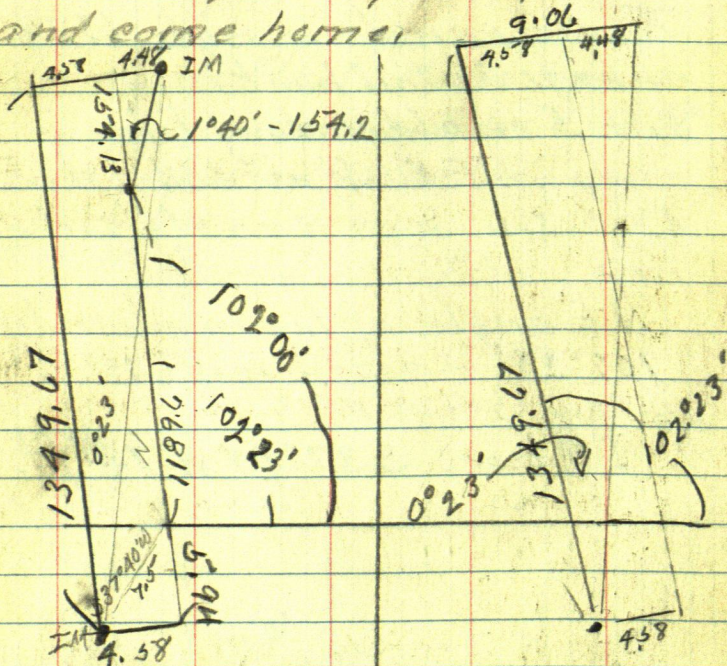 and come home.
4.58 4.48 IM
154.13
1°40' - 154.2
102°00'
102°23'
1349.67
0°23'
N
1189.6
S37°40'W
7.5
5.94
IM
4.58
9.06
4.58 4.48
1349.67
0°23'
102°23'
4.58